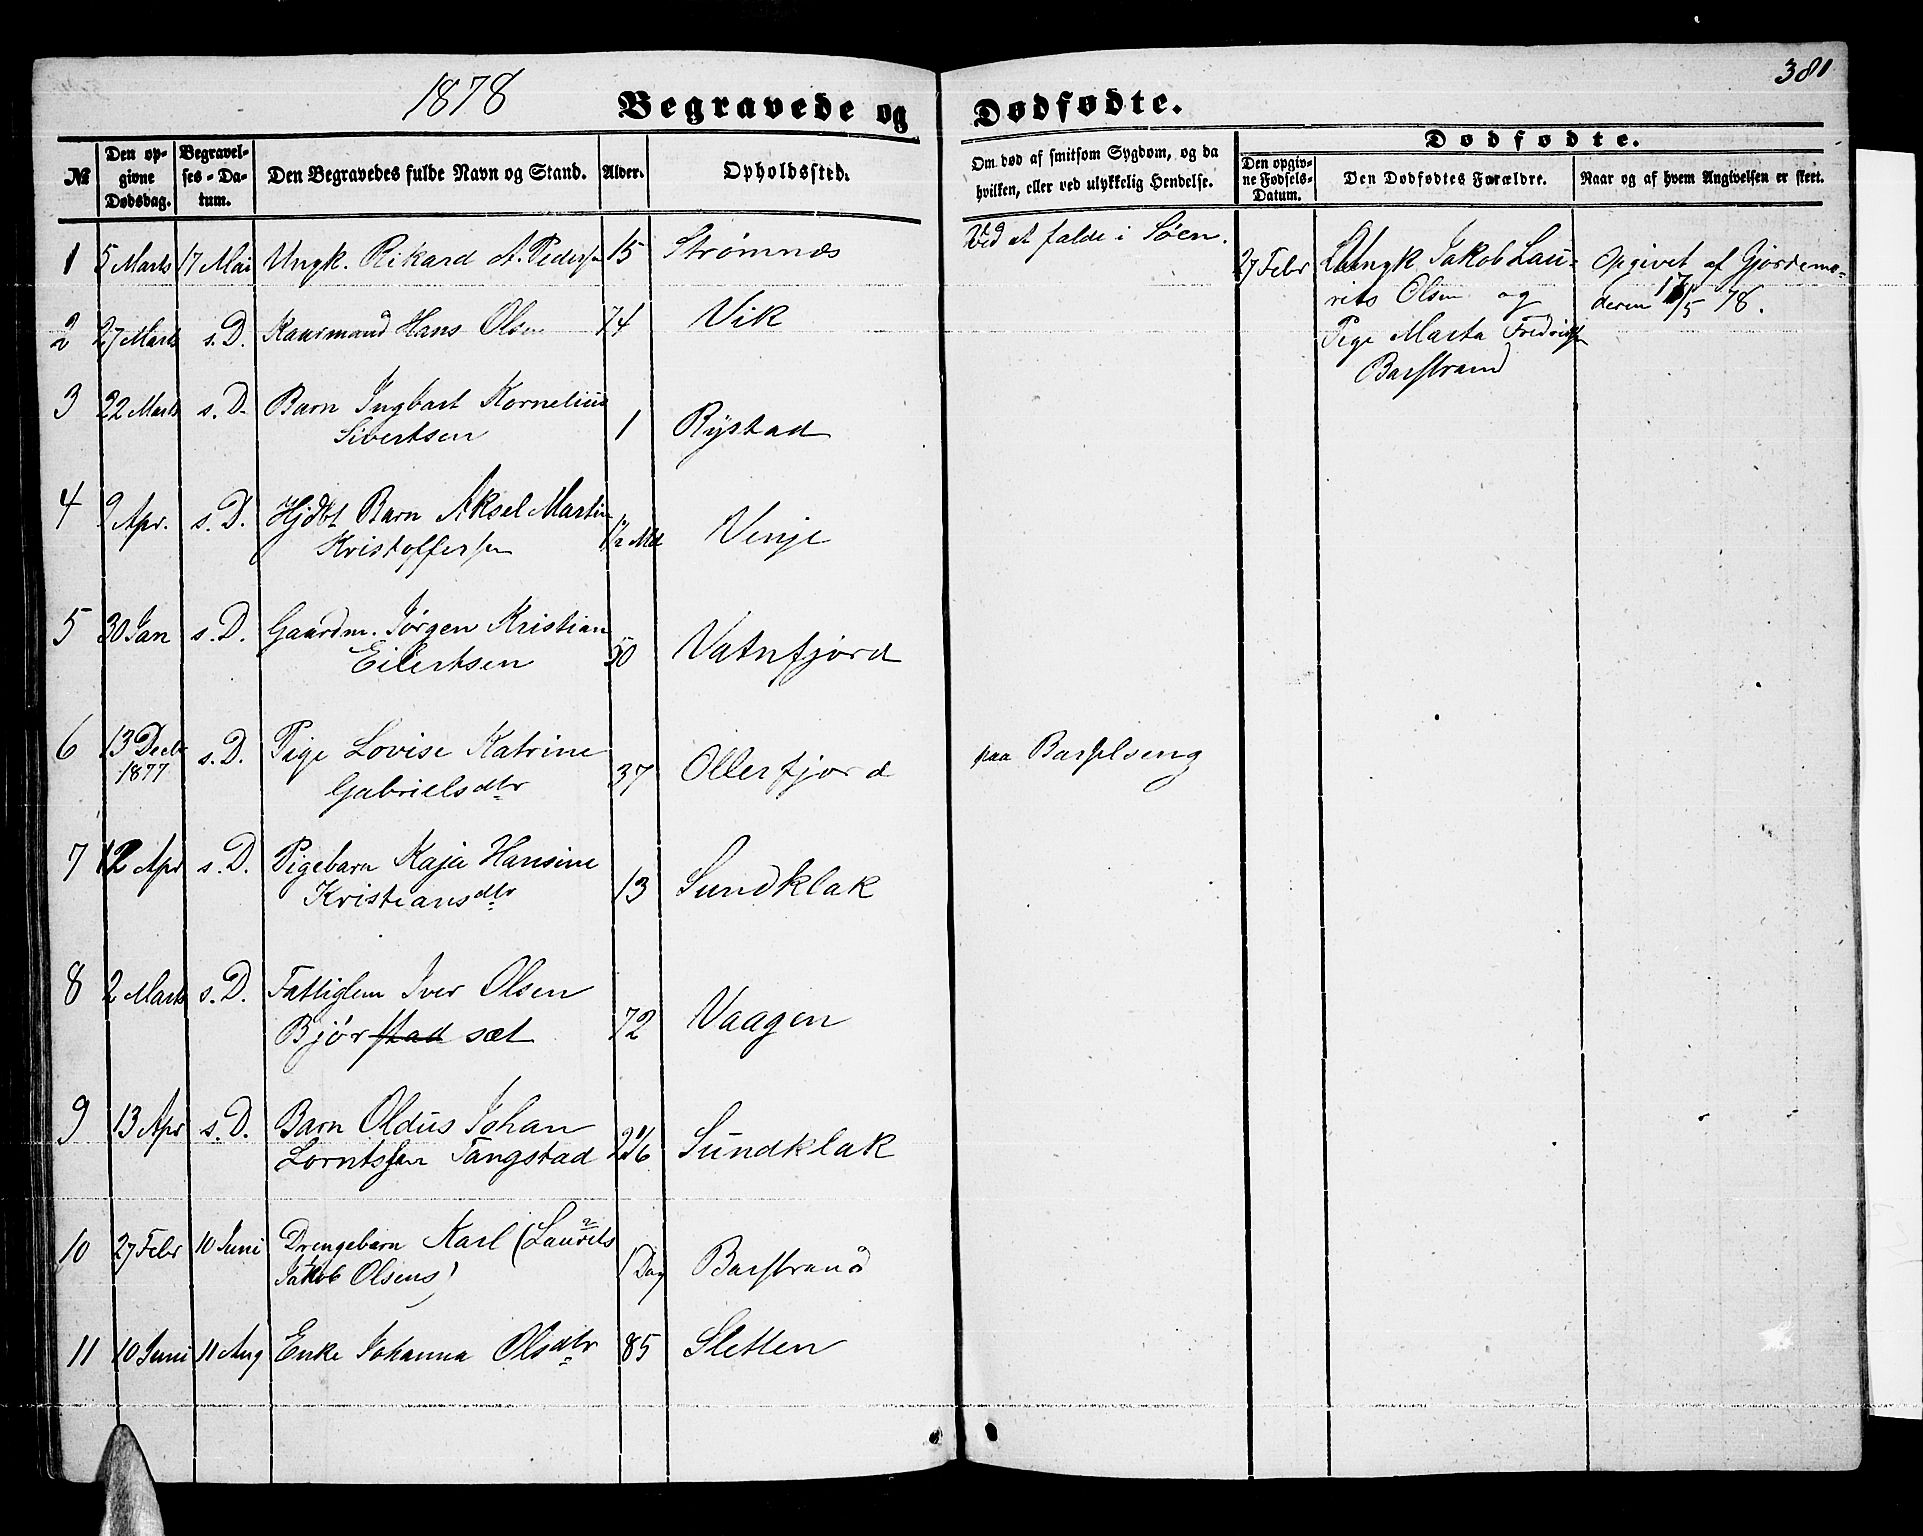 381
1878
Begravede og Dødfødte.
№
Den opgivne Dødsdag.
Begravelses-Datum.
Den Begravedes fulde Navn og Stand.
Alder.
Opholdssted.
Om død af smitsom Sygdom, og da hvilken, eller ved ulykkelig Hendelse.
Dødfødte.
Den opgivne Fødsels-Datum.
Den Dødfødtes Forældre.
Naar og af hvem Angivelsen er skeet.
1 5 Marts 17 Mai Ungk. Rikard A. Pedersen 15 Strømnæs Ved at falde i Søen.
27 Febr Ungk Jakob Lau- Opgivet af Gjordemo-
rits Olsen og deren 17/5 78.
Pige Marta Fredriksen
Barstrand
2 27 Marts s. D. Kaarmand Hans Olsen 74 Vik
3 22 Marts s. D. Barn Ingbart Kornelius
Sivertsen 1 Rystad
4 9 Apr. s. D. Hjdbt Barn Aksel Martin
Kristoffersen 1/2 Md Venje
5 30 Jan s. D. Gaardm. Jørgen Kristian
Eilertsen 50 Vatnfjord
6 13 Decbr s. D. Pige Lovise Katrine
1877 Gabrielsdtr 37 Ollerfjord paa Barselseng
7 12 Apr s. D. Pigebarn Kaja Hansine
Kristiansdtr 13 Sundklak
8 2 Marts s. D. Fattiglem Iver Olsen
Bjørstad sæt 72 Vaagen
9 13 Apr s. D. Barn Oldus Johan
Lorntssen Tangstad Sundklak
10 27 Febr 10 Juni Drengebarn Karl (Laurits
Jakob Olsens) 1 Dag Barstrand
11 10 Juni 11 Aug Enke Johanna Olsdtr 85 Sletten